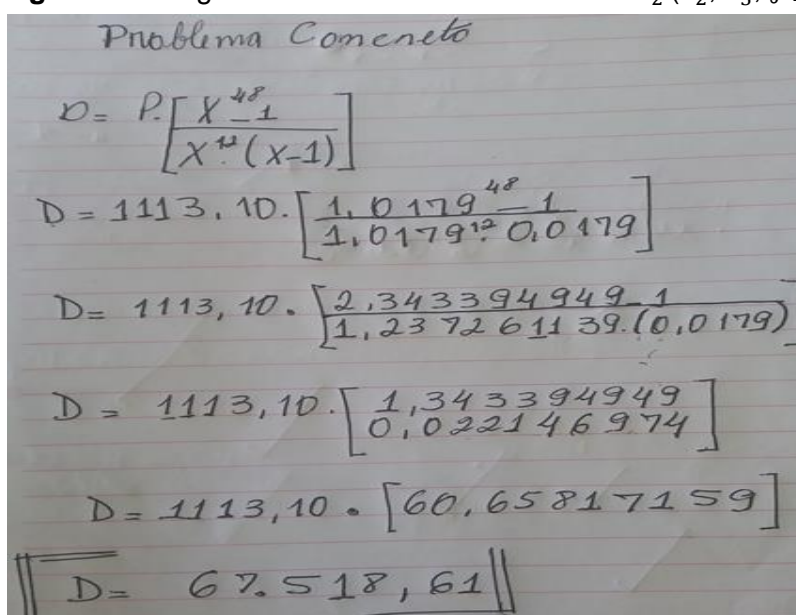 Problema Concreto
D= P.[X^48-1 / X^12.(X-1)]
D = 1113,10.[1,0179^48-1 / 1,0179^12.0,0179]
D= 1113,10.[2,343394949-1 / 1,237261139.(0,0179)]
D = 1113,10.[1,343394949 / 0,022146974]
D= 1113,10.[60,65817159]
D= 67.518,61